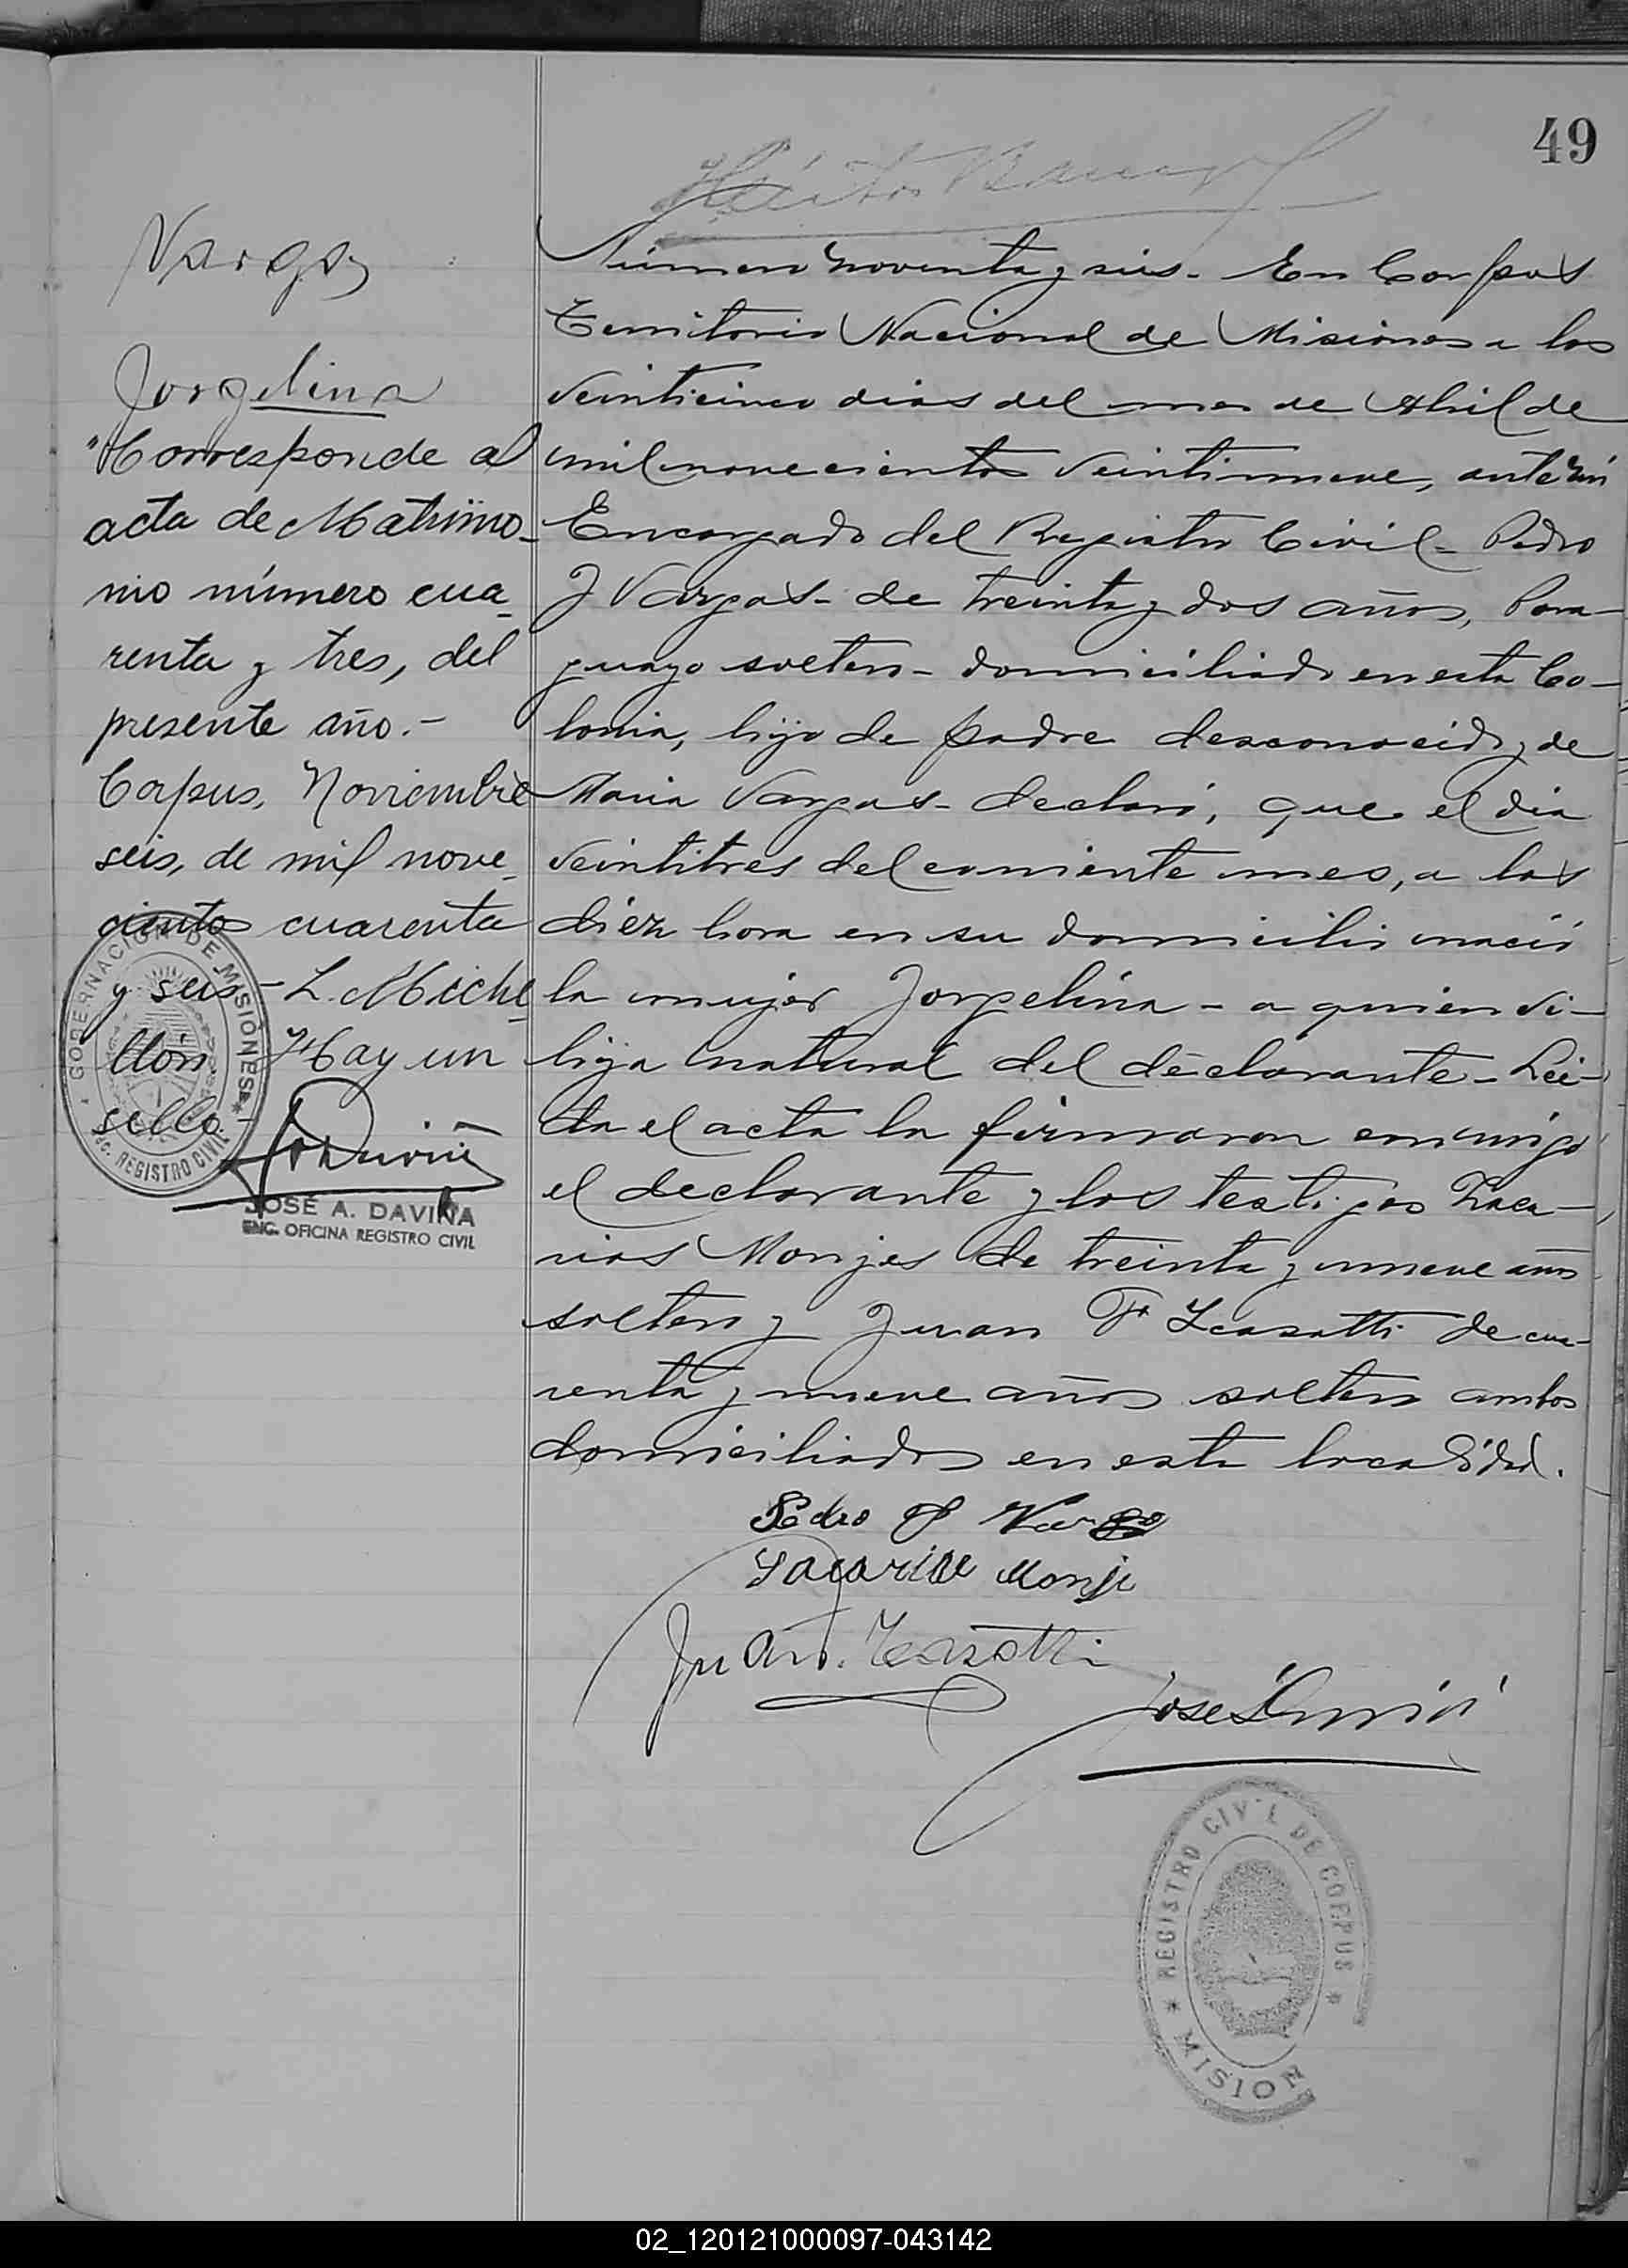 49
Vargas
Jorgelina
"Corresponde al
acta de Matrimo-
nio número cua-
renta y tres, del
presente año.-
Corpus, Noviembre
seis, de mil nove-
cientos cuarenta
y seis - L. Miche-
llón. Hay un
sello.-
GOBERNACION DE MISIONES
REGISTRO CIVIL
JOSÉ A. DAVIÑA
ENC. OFICINA REGISTRO CIVIL
Número noventa y seis. En Corpus
Territorio Nacional de Misiones a los
veinticinco dias del mes de Abril de
mil novecientos veintinueve, ante mi
Encargado del Registro Civil - Pedro
J Vargas - de treinta y dos años, Para-
guayo soltero - domiciliado en esta Co-
lonia, hijo de padre desconocido y de
Maria Vargas - declaró, que el dia
veintitres del corriente mes, a las
diez hora en su domicilio nació
la mujer Jorgelina - a quien vi-
hija natural del declarante - Lei-
da el acta la firmaron conmigo
el declarante y los testigos Zaca-
rias Monjes de treinta y nueve años
soltero y Juan F Lcasatti de cua-
renta y nueve años soltero ambos
domiciliados en esta localidad.
Pedro J Vargas
Sacarias Monje
Juan
José Daviñá
REGISTRO CIVIL DE CORPUS
MISION
02_120121000097-043142